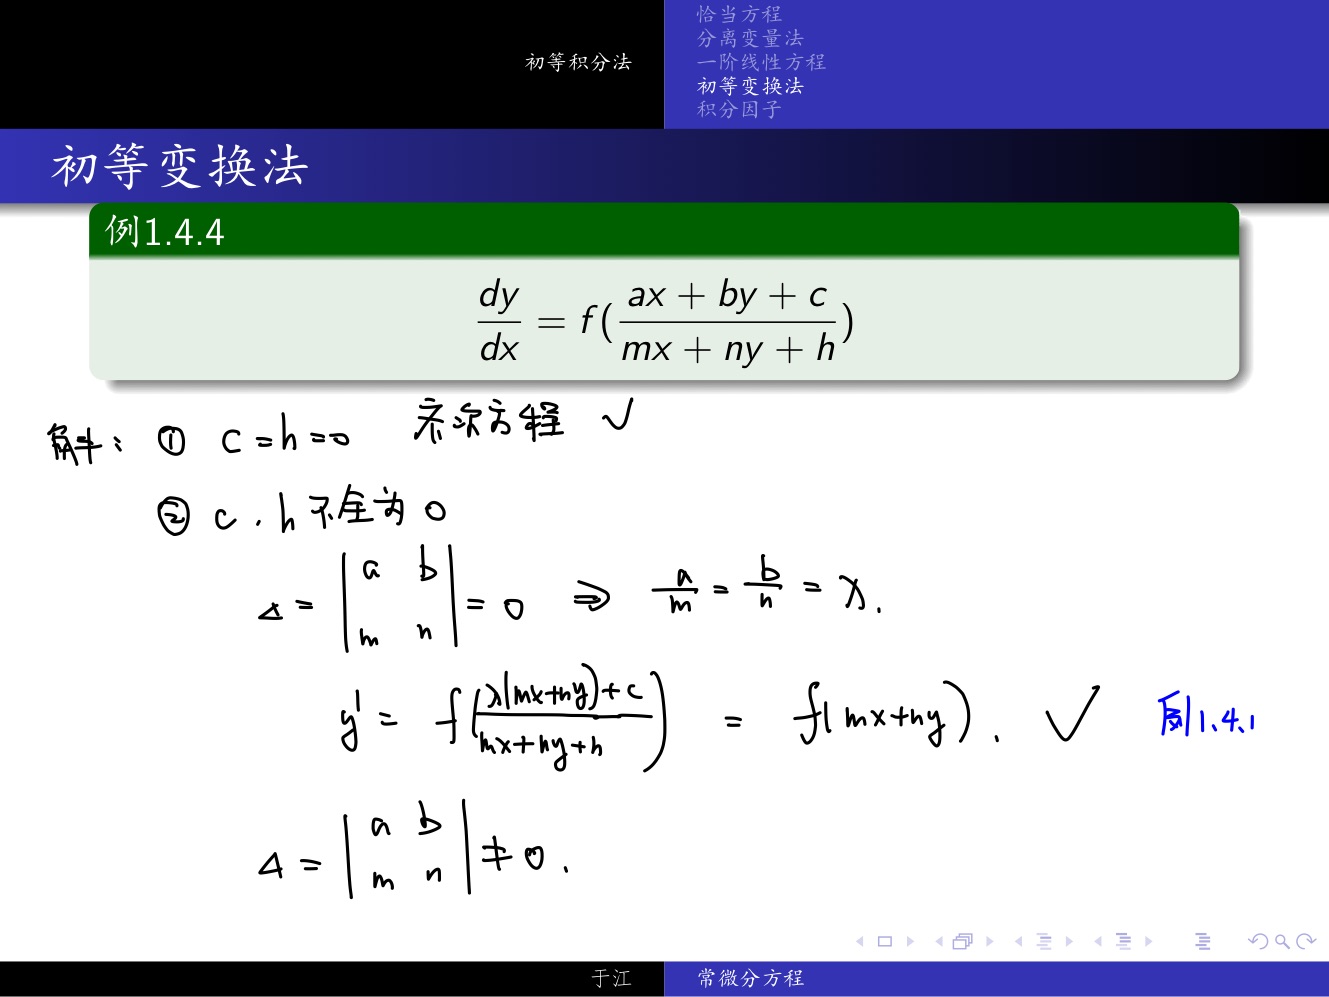 初等积分法
恰当方程
分离变量法
一阶线性方程
初等变换法
积分因子
初等变换法
例1.4.4
dy/dx = f(ax + by + c / mx + ny + h)
解: ① c = h = 0 齐次方程 ✓
② c, h 不全为 0
Δ = | a b ; m n | = 0 ⇒ a/m = b/n = λ.
y' = f(λ(mx+ny)+c / mx+ny+h) = f(mx+ny). ✓ 例1.4.1
Δ = | a b ; m n | ≠ 0.
于江
常微分方程